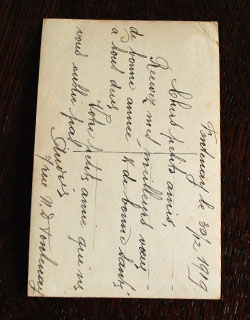 Fontenay le 30/12 1919
Chers petits amis,
Recevez mes meilleurs vœux
de bonne année & de bonne santé
à vous deux
Votre petite amie qui ne
vous oublie pas
rue N. D Fontenay